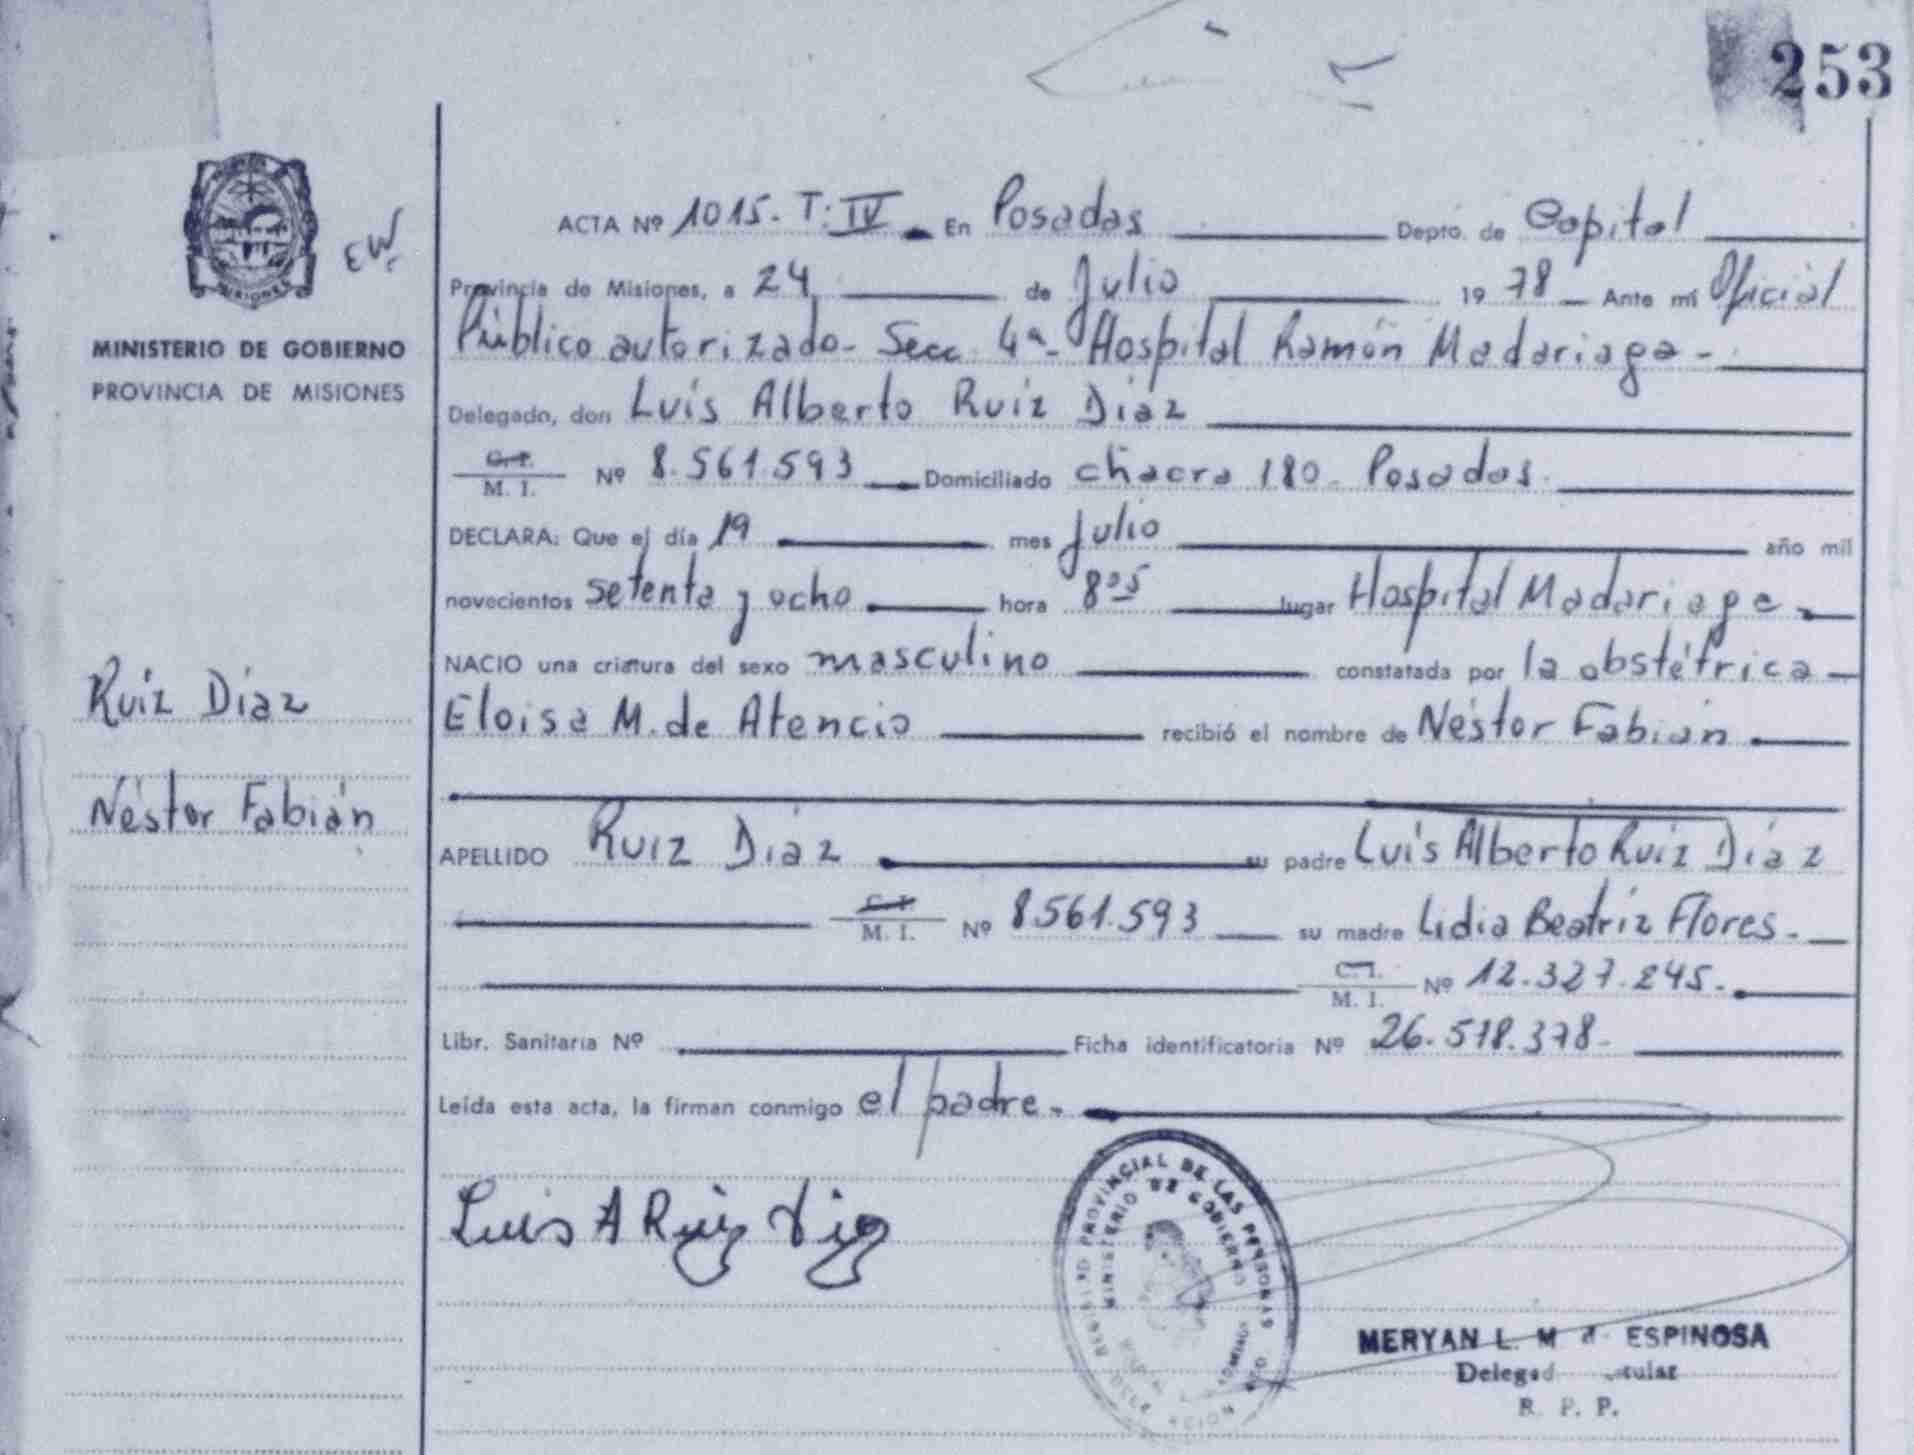 253
ACTA Nº 1015. T: IV. En Posadas Depto. de Capital
Provincia de Misiones, a 24 de Julio 19 78 Ante mí Oficial
Público autorizado - Secc. 4ª - Hospital Ramón Madariaga -
Delegado, don Luis Alberto Ruiz Diaz
C. I.
M. I. Nº 8.561.593 Domiciliado chacra 180 - Posadas.
DECLARA: Que el día 19 mes Julio año mil
novecientos setenta y ocho hora 8:05 lugar Hospital Madariaga.
NACIO una criatura del sexo masculino constatada por la obstétrica
Eloisa M. de Atencio recibió el nombre de Néstor Fabián
APELLIDO Ruiz Diaz su padre Luis Alberto Ruiz Diaz
C. I.
M. I. Nº 8.561.593 su madre Lidia Beatriz Flores.
C. I.
M. I. Nº 12.327.245.
Libr. Sanitaria Nº Ficha identificatoria Nº 26.578.378-
Leída esta acta, la firman conmigo el padre.
Luis A Ruiz Diaz
MISIONES
EW
MINISTERIO DE GOBIERNO
PROVINCIA DE MISIONES
Ruiz Diaz
Néstor Fabián
PROVINCIAL DE LAS PERSONAS
MINISTERIO DE GOBIERNO
MERYAN L. M ESPINOSA
R. P. P.